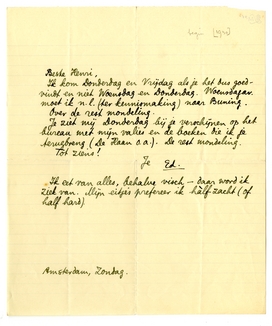 Beste Henri,
Ik kom Donderdag en Vrijdag als je het dus goed-
vindt en niet Woensdag en Donderdag. Woensdagav.
moet ik n.l. (ter kennismaking) naar Buning.
Over de rest mondeling.
Je ziet mij Donderdag bij je verschijnen op het
bureau met mijn valies en de boeken die ik je
terugbreng (De Haan o.a.). De rest mondeling.
Tot ziens!
Je Ed.
Ik eet van alles, behalve visch – daar word ik
ziek van. Mijn eitjes prefereer ik half zacht (of
half hard)
Amsterdam, Zondag.